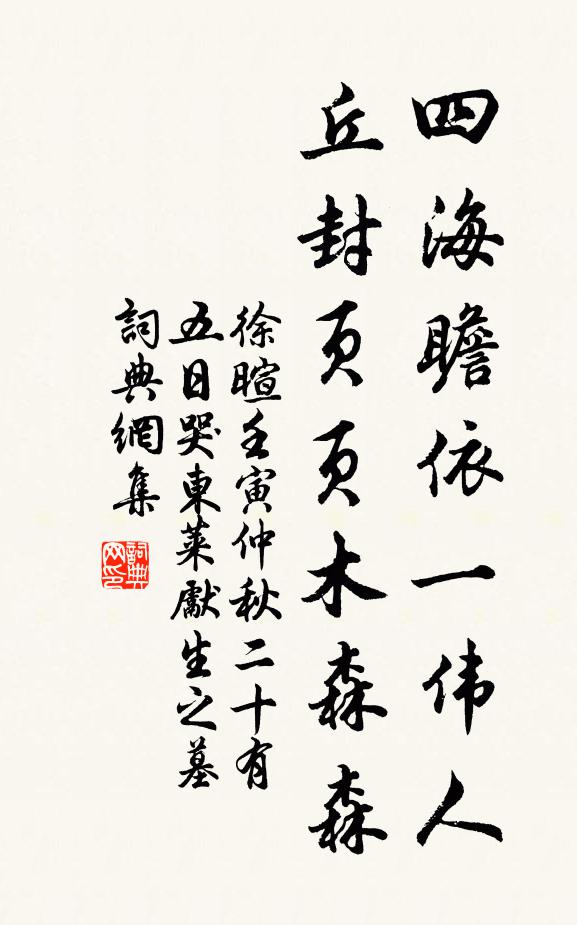 四海瞻依一伟人
丘封页页木森森
徐暄壬寅仲秋二十有
五日哭東萊獻生之墓
詞典網集
詞典网印